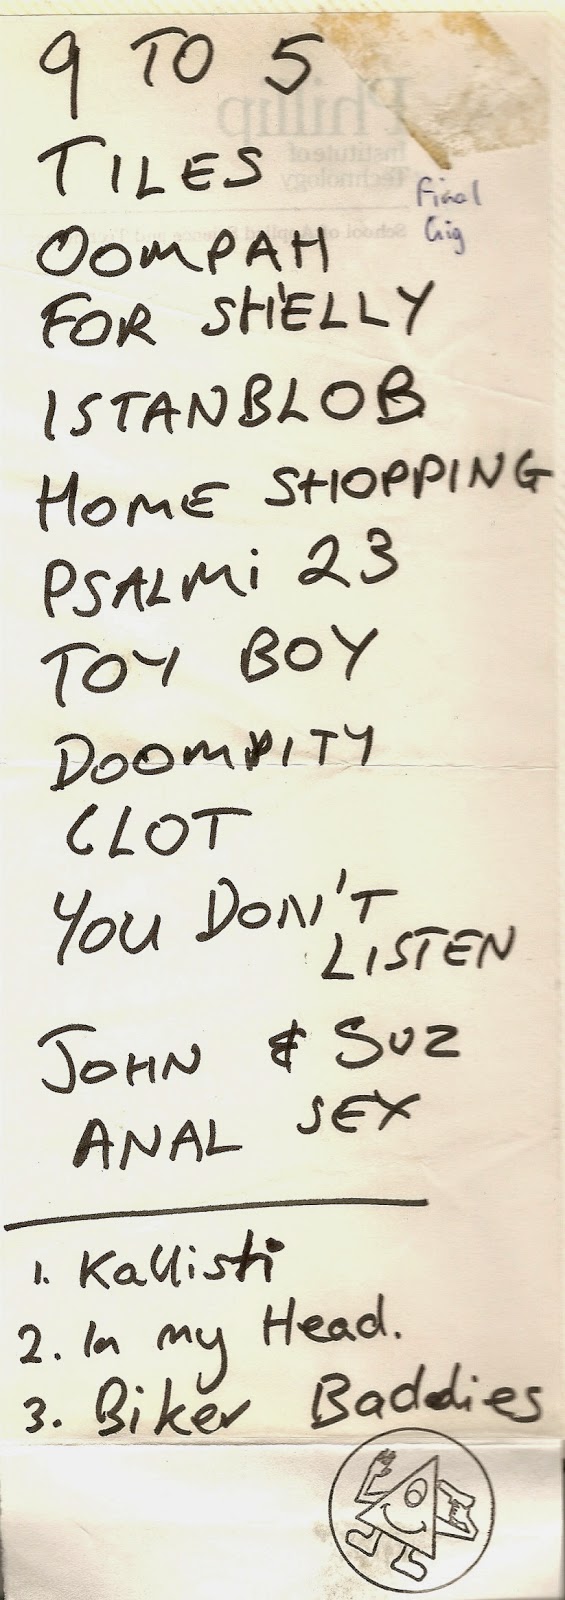 9 TO 5
Phillip
Institute of
Technology
TILES
Final
Gig
School of Applied Science and
OOMPAH
FOR SHELLY
ISTANBLOB
HOME SHOPPING
PSALMi 23
TOY BOY
DOOMPITY
CLOT
YOU DON'T
LISTEN
JOHN & SUZ
ANAL SEX
1. Kallisti
2. In my Head.
3. Biker Baddies